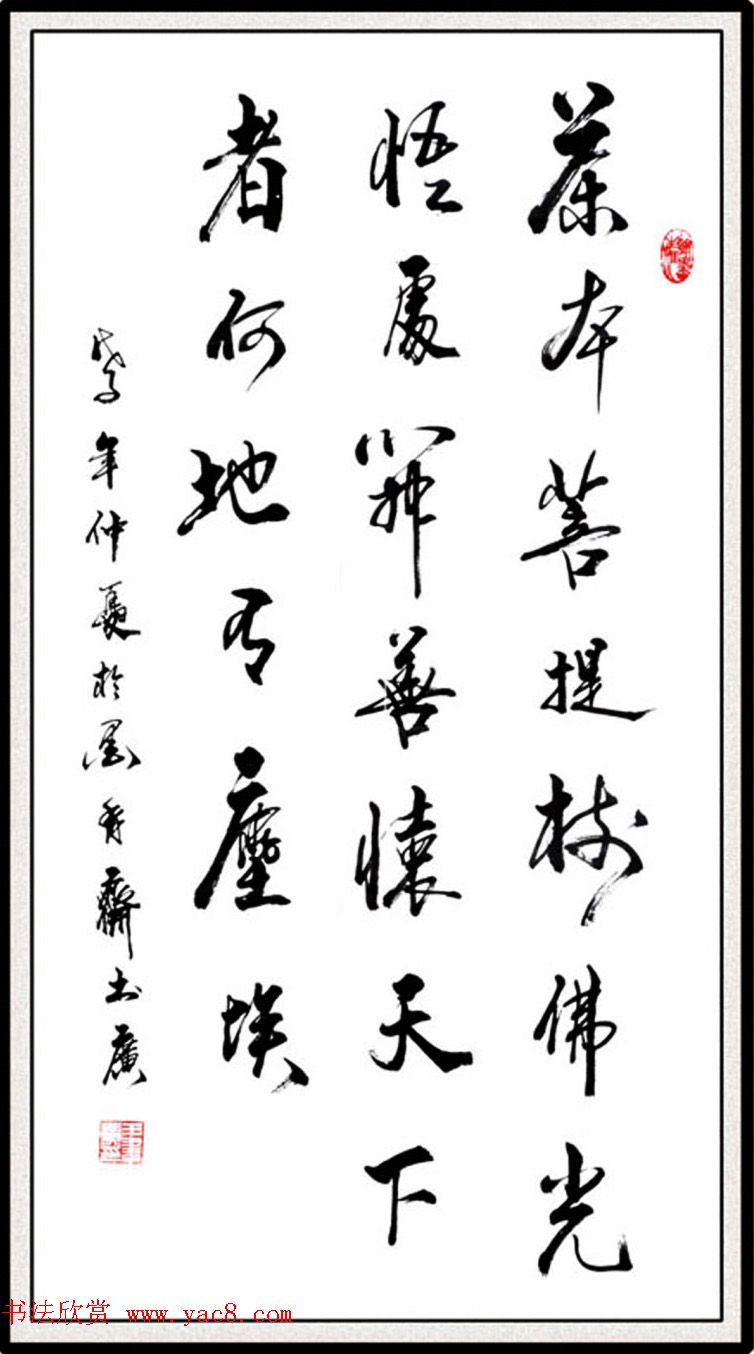 茶本菩提樹佛光
悟處開善懷天下
者何地有塵埃
戊子年仲夏於墨香齋書廣
书法欣赏 www.yac8.com